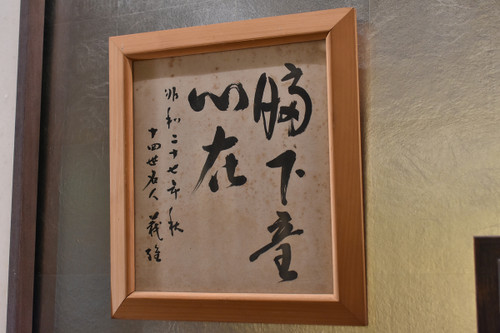 下童
心在
昭和二十七年秋
十四世名人 義雄